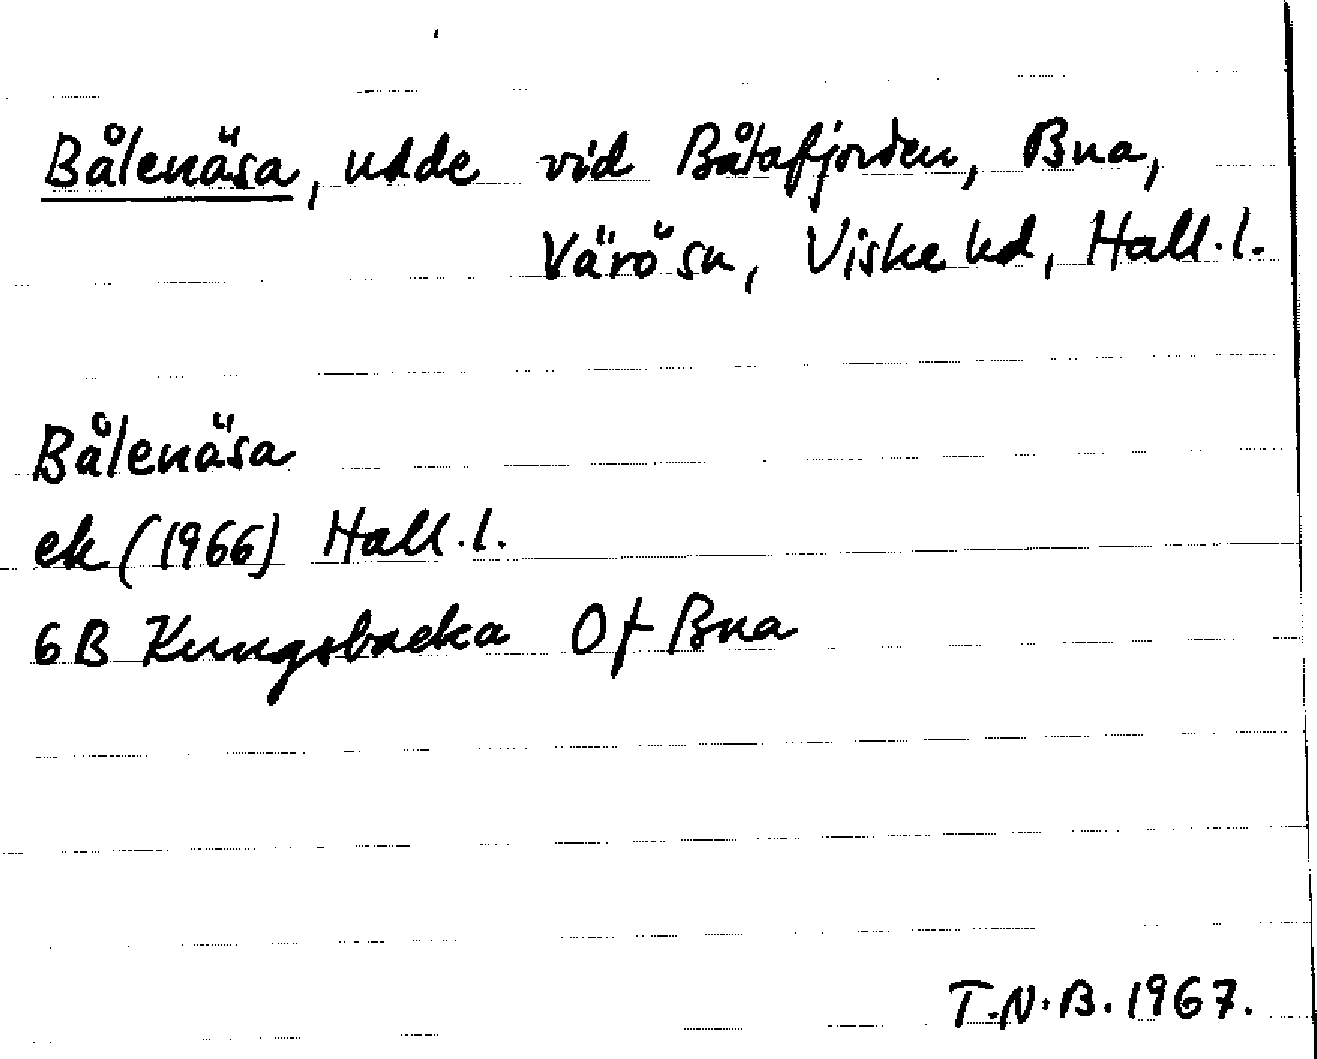 Bålenäsa, udde vid Båtafjorden, Bua,
Värö sn, Viske hd, Hall. l.
Bålenäsa
ek (1966) Hall. l.
6B Kungsbacka Of Bua
T.N.B. 1967.